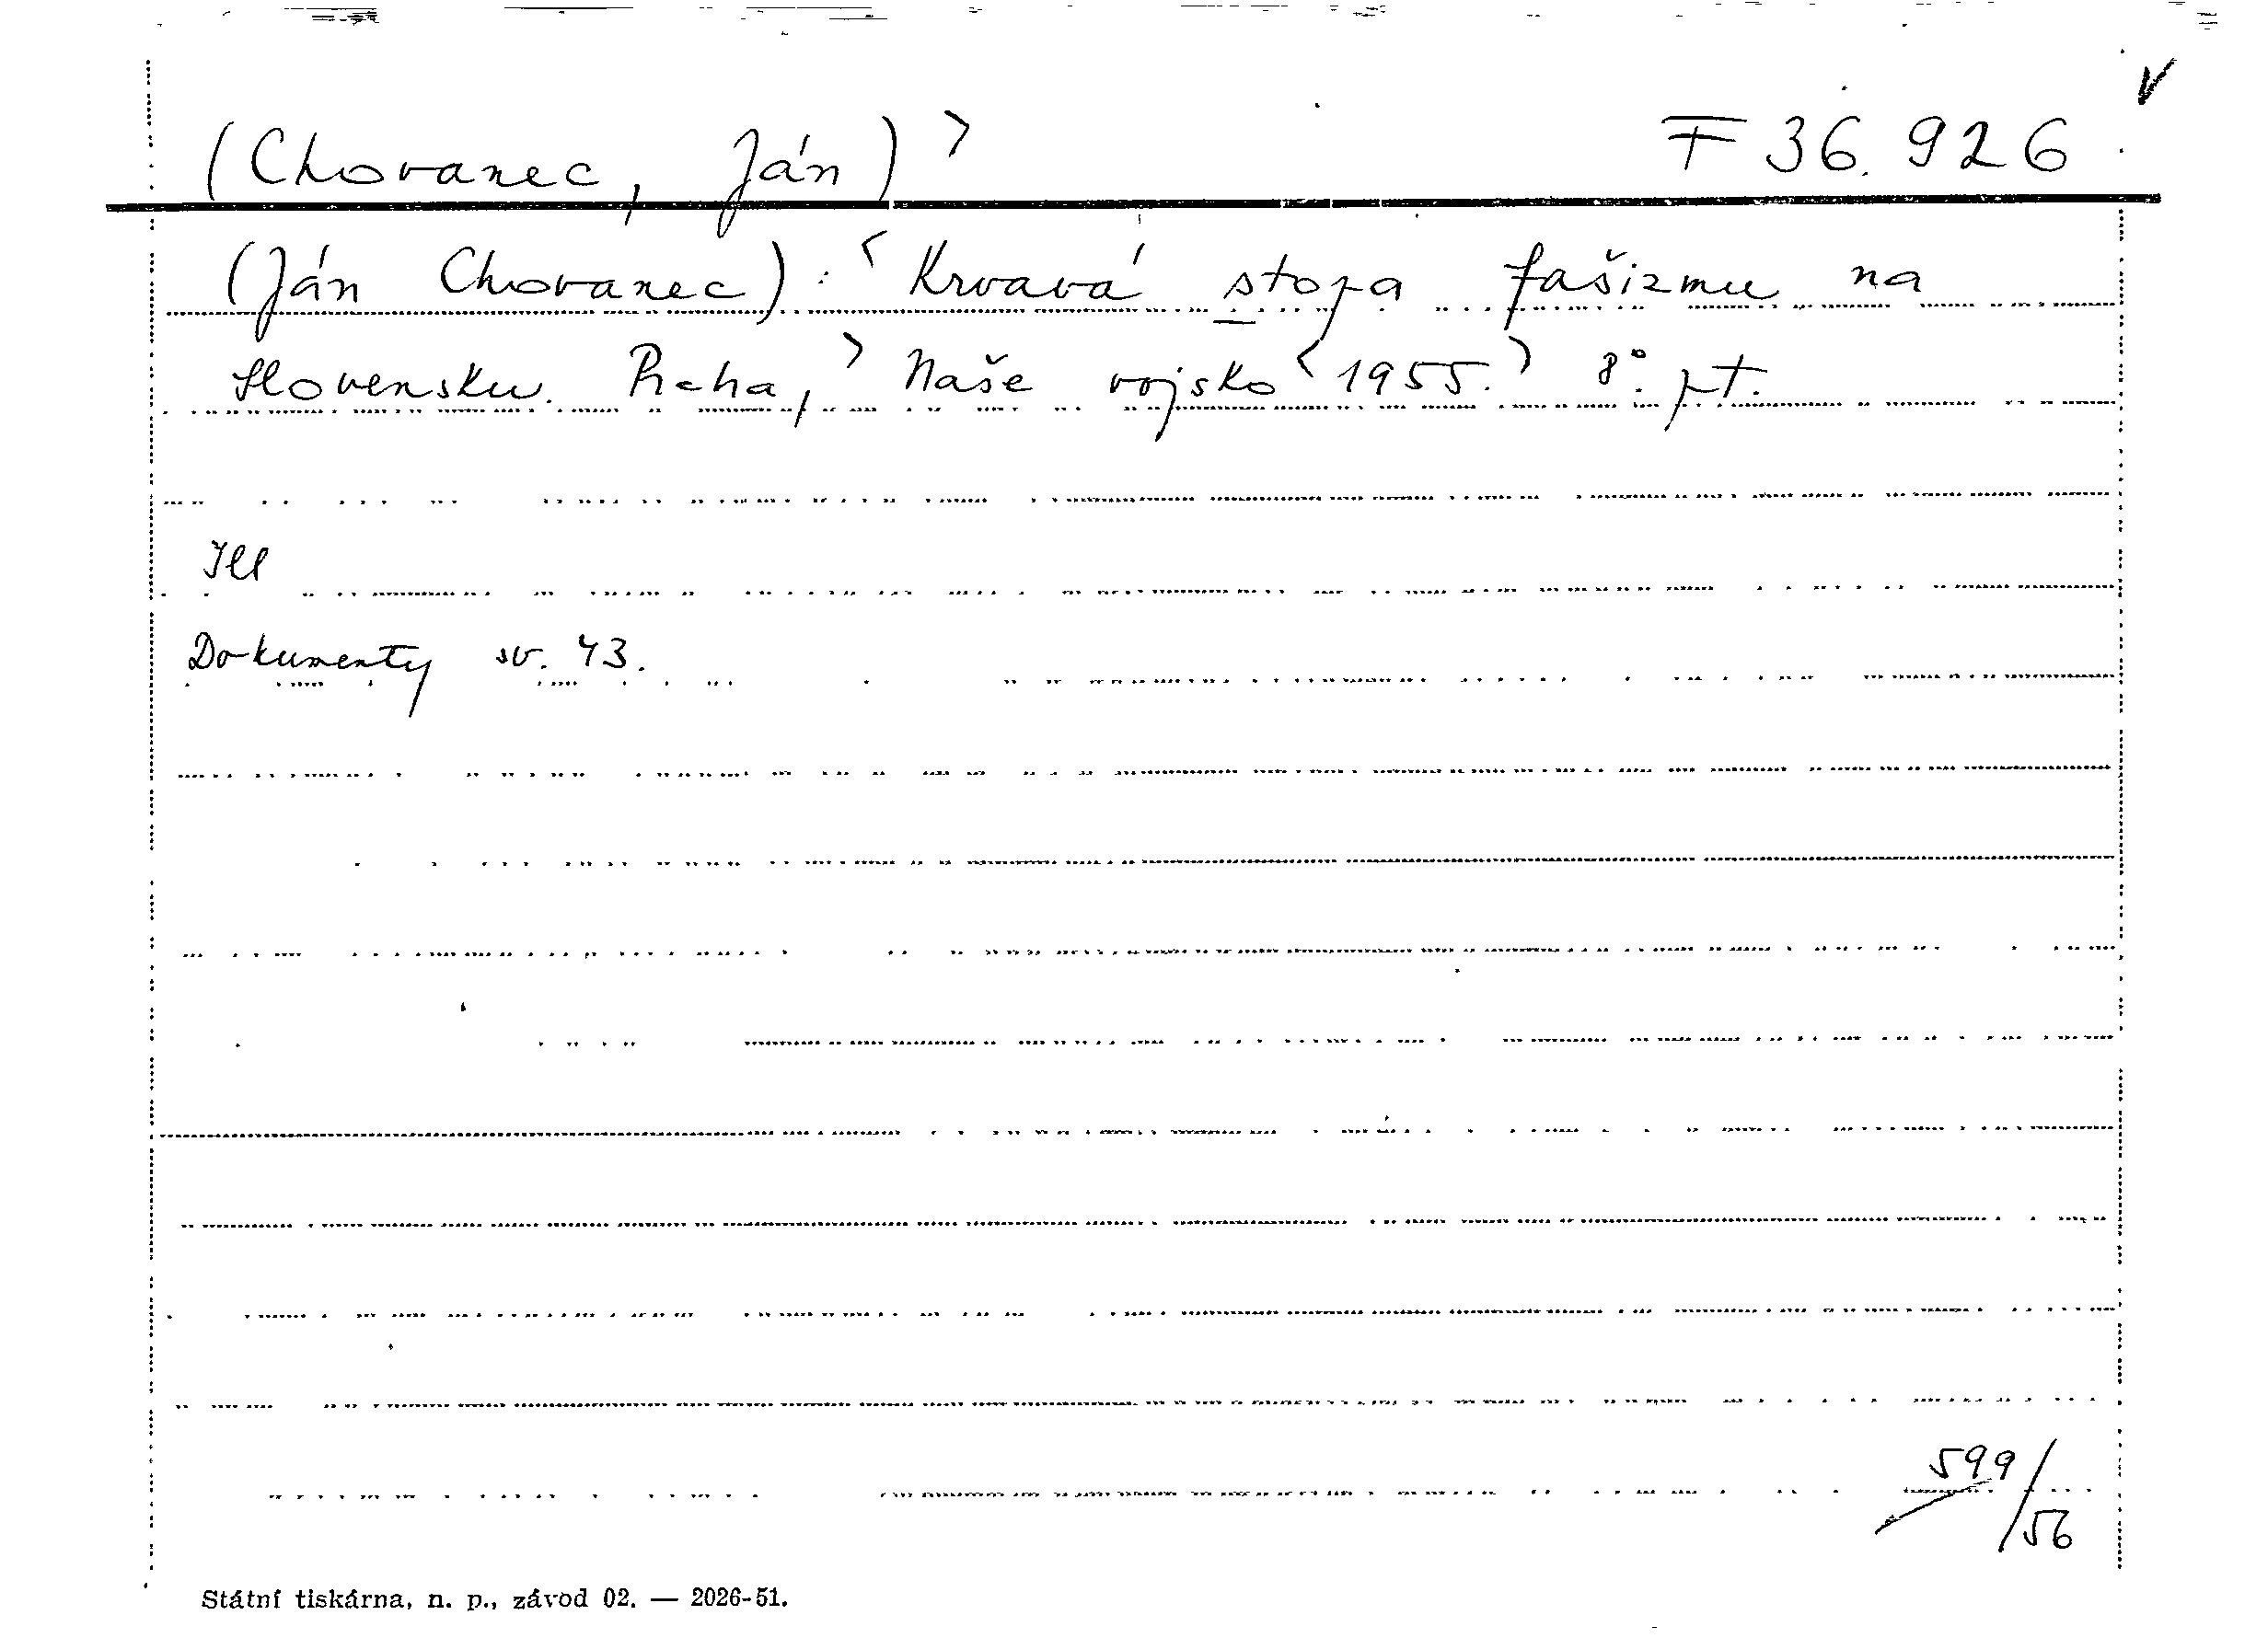 (Chovanec, Ján)> F 36.926 V
(Ján Chovanec): <Krvavá stopa fašizmu na
Slovensku. Praha,> Naše vojsko <1955.> 8°. pt.
Ill
Dokumenty sv. 43.
599/56
Státní tiskárna, n. p., závod 02. — 2026-51.